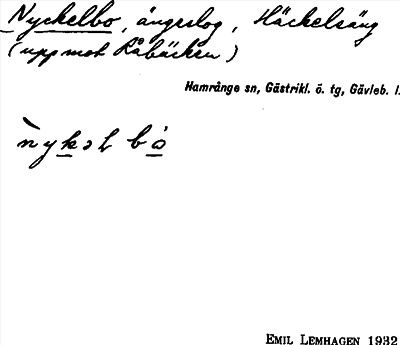 Nyckelbo, ängeslog, Häckelsäng
(upp mot Råbäcken)
Hamrånge sn, Gästrikl. ö. tg, Gävleb. l.
EMIL LEMHAGEN 1932